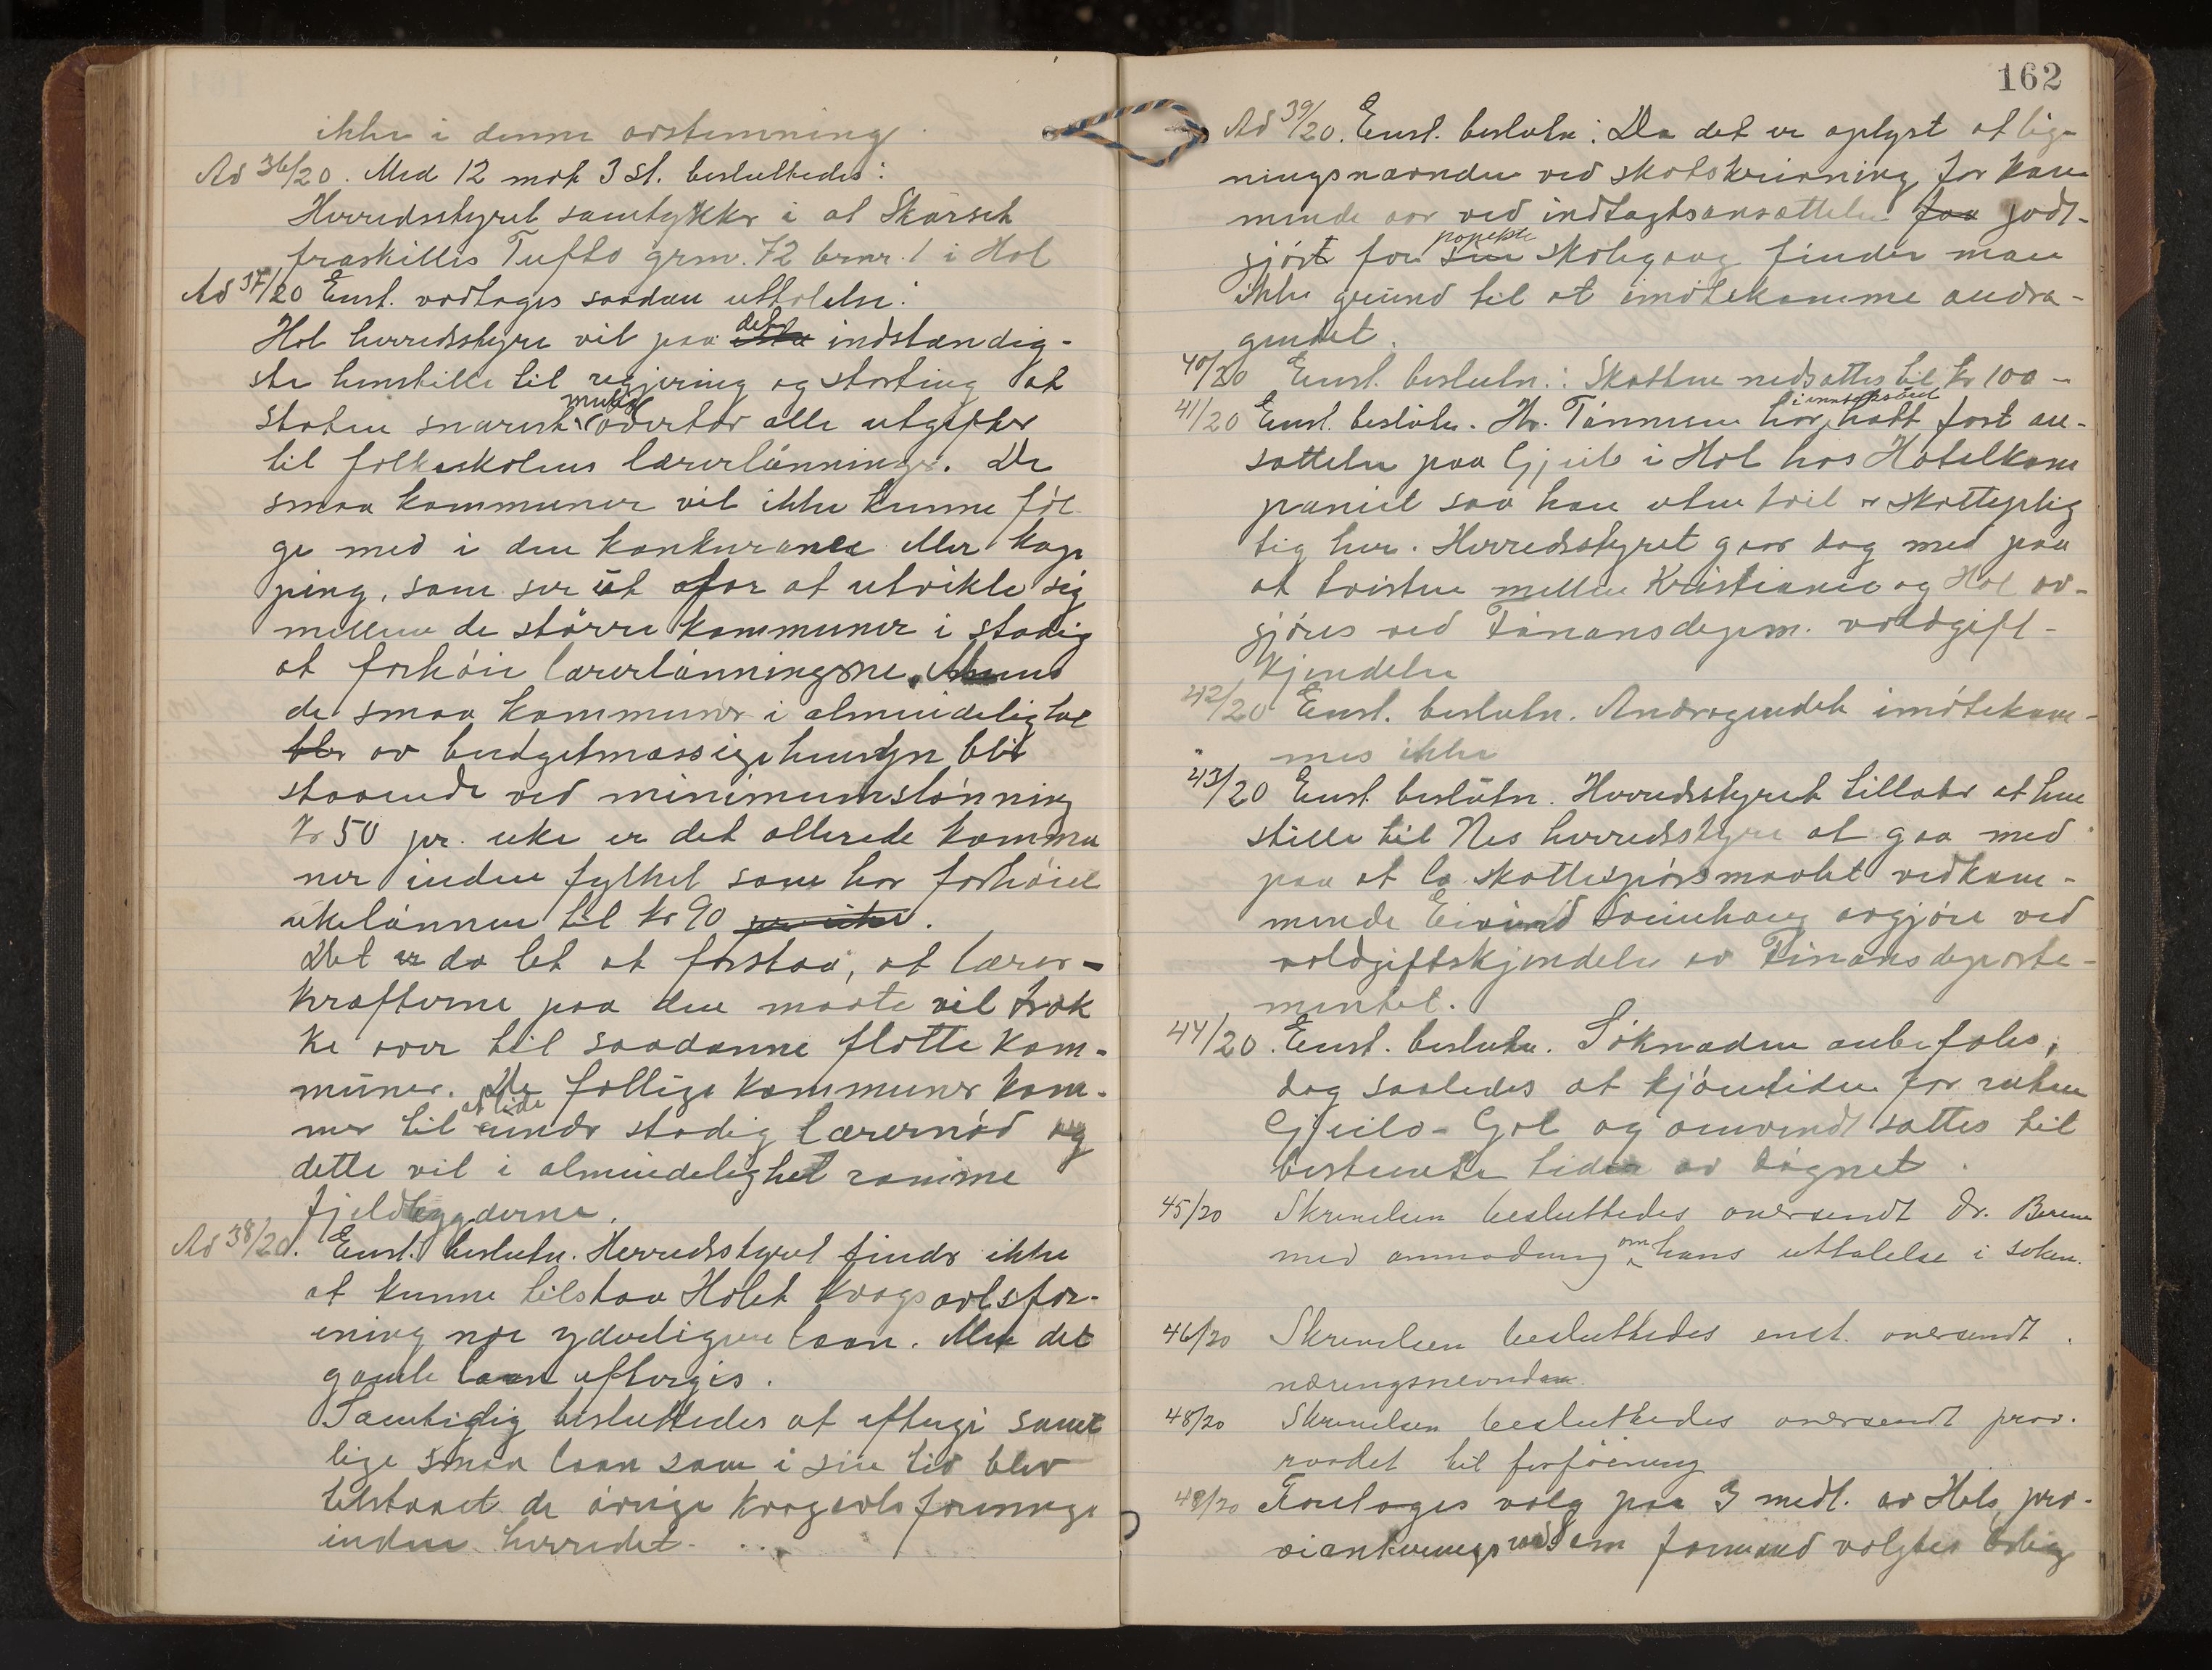 ikke i denne avstemning.
Ad 36/20. Med 12 mot 3 st. besluttedes:
Herredsstyret samtykker i at Skarset
fraskilles Tufto grnr. 72 brnr. 1 i Hol
Ad 37/20 Enst. vedtoges saadan uttalelse:
Hol herredsstyre vil paa det indstændig-
ste henstille til regjering og storting at
staten snarest mulig overtar alle utgifter
til folkeskolens lærerlønninger. De
smaa kommuner vil ikke kunne føl
ge med i den konkurance eller kap
ping, som ser ut for at utvikle sig
mellem de større kommuner i stadig
at forhøie lærerlønningene. Mens
de smaa kommuner i almindelighet
blir av budgetmæssige hensyn blit
staaende ved minimumslønning
Kr 50 pr. uke er det allerede kommu
ner inden fylket som har forhøiet
ukelønnen til kr 90 pr uke.
Det er da let at forstaa, at lærer-
kræfterne paa den maate vil træk
ke over til saadanne flotte kom-
muner. De fattige kommuner kom-
mer til at lide under stadig lærernød og
dette vil i almindelighet ramme
fjeldbygderne.
Ad 38/20. Enst. beslutn. Herredsstyret finder ikke
at kunne tilstaa Holet kvægavlsfor-
ening noe yderligere laan. Men det
gamle laan eftergis.
Samtidig besluttedes at eftergi samt
lige smaa laan som i sin tid blev
tilstaaet de øvrige kvægavlsforeninge
inden herredet.
162
Ad 39/20. Enst. beslutn: Da det er oplyst at lig-
ningsnævnden ved skatskrivning for kom
mende aar ved indtægtsansættelse faa godt-
gjørt for sin skolegang finder man
ikke grund til at imøtekomme andra-
gendet.
40/20 Enst. beslutn.: Skatten nedsættes til kr 100-
41/20 Enst. beslutn. Hr. Tønnesen har hatt fast an-
sættelse paa Gjeilo i Hol hos Hotelkom
paniet saa han uten tvil er skattepligt
tig her. Herredsstyret gaar dog med paa
at tvisten mellem Kristiania og Hol av-
gjøres ved Finansdepm. voldgift-
kjendelse
42/20 Enst. beslutn. Andragendet imøtekom-
mes ikke
43/20 Enst. beslutn. Herredsstyret tillater at hen
stille til Nes herredsstyre at gaa med
paa at la skattespørsmaalet vedkom-
mende Eivind avgjøre ved
voldgiftskjendelse av Finansdeparte-
mentet.
44/20. Enst. beslutn. Søknaden anbefales,
dog saaledes at kjøretiden for ruten
Gjeilo - Gol og omvendt sættes til
bestemte tider av døgnet.
45/20 Skrivelsen besluttedes oversendt Dr.
med anmodning om hans uttalelse i saken.
46/20 Skrivelsen besluttedes enst. oversendt
næringsnevnden.
48/20 Skrivelsen besluttedes oversendt prov.
raadet til forføining
49/20 Foretoges valg paa 3 medl. av Hols pro-
vianteringsraad som formand valgtes